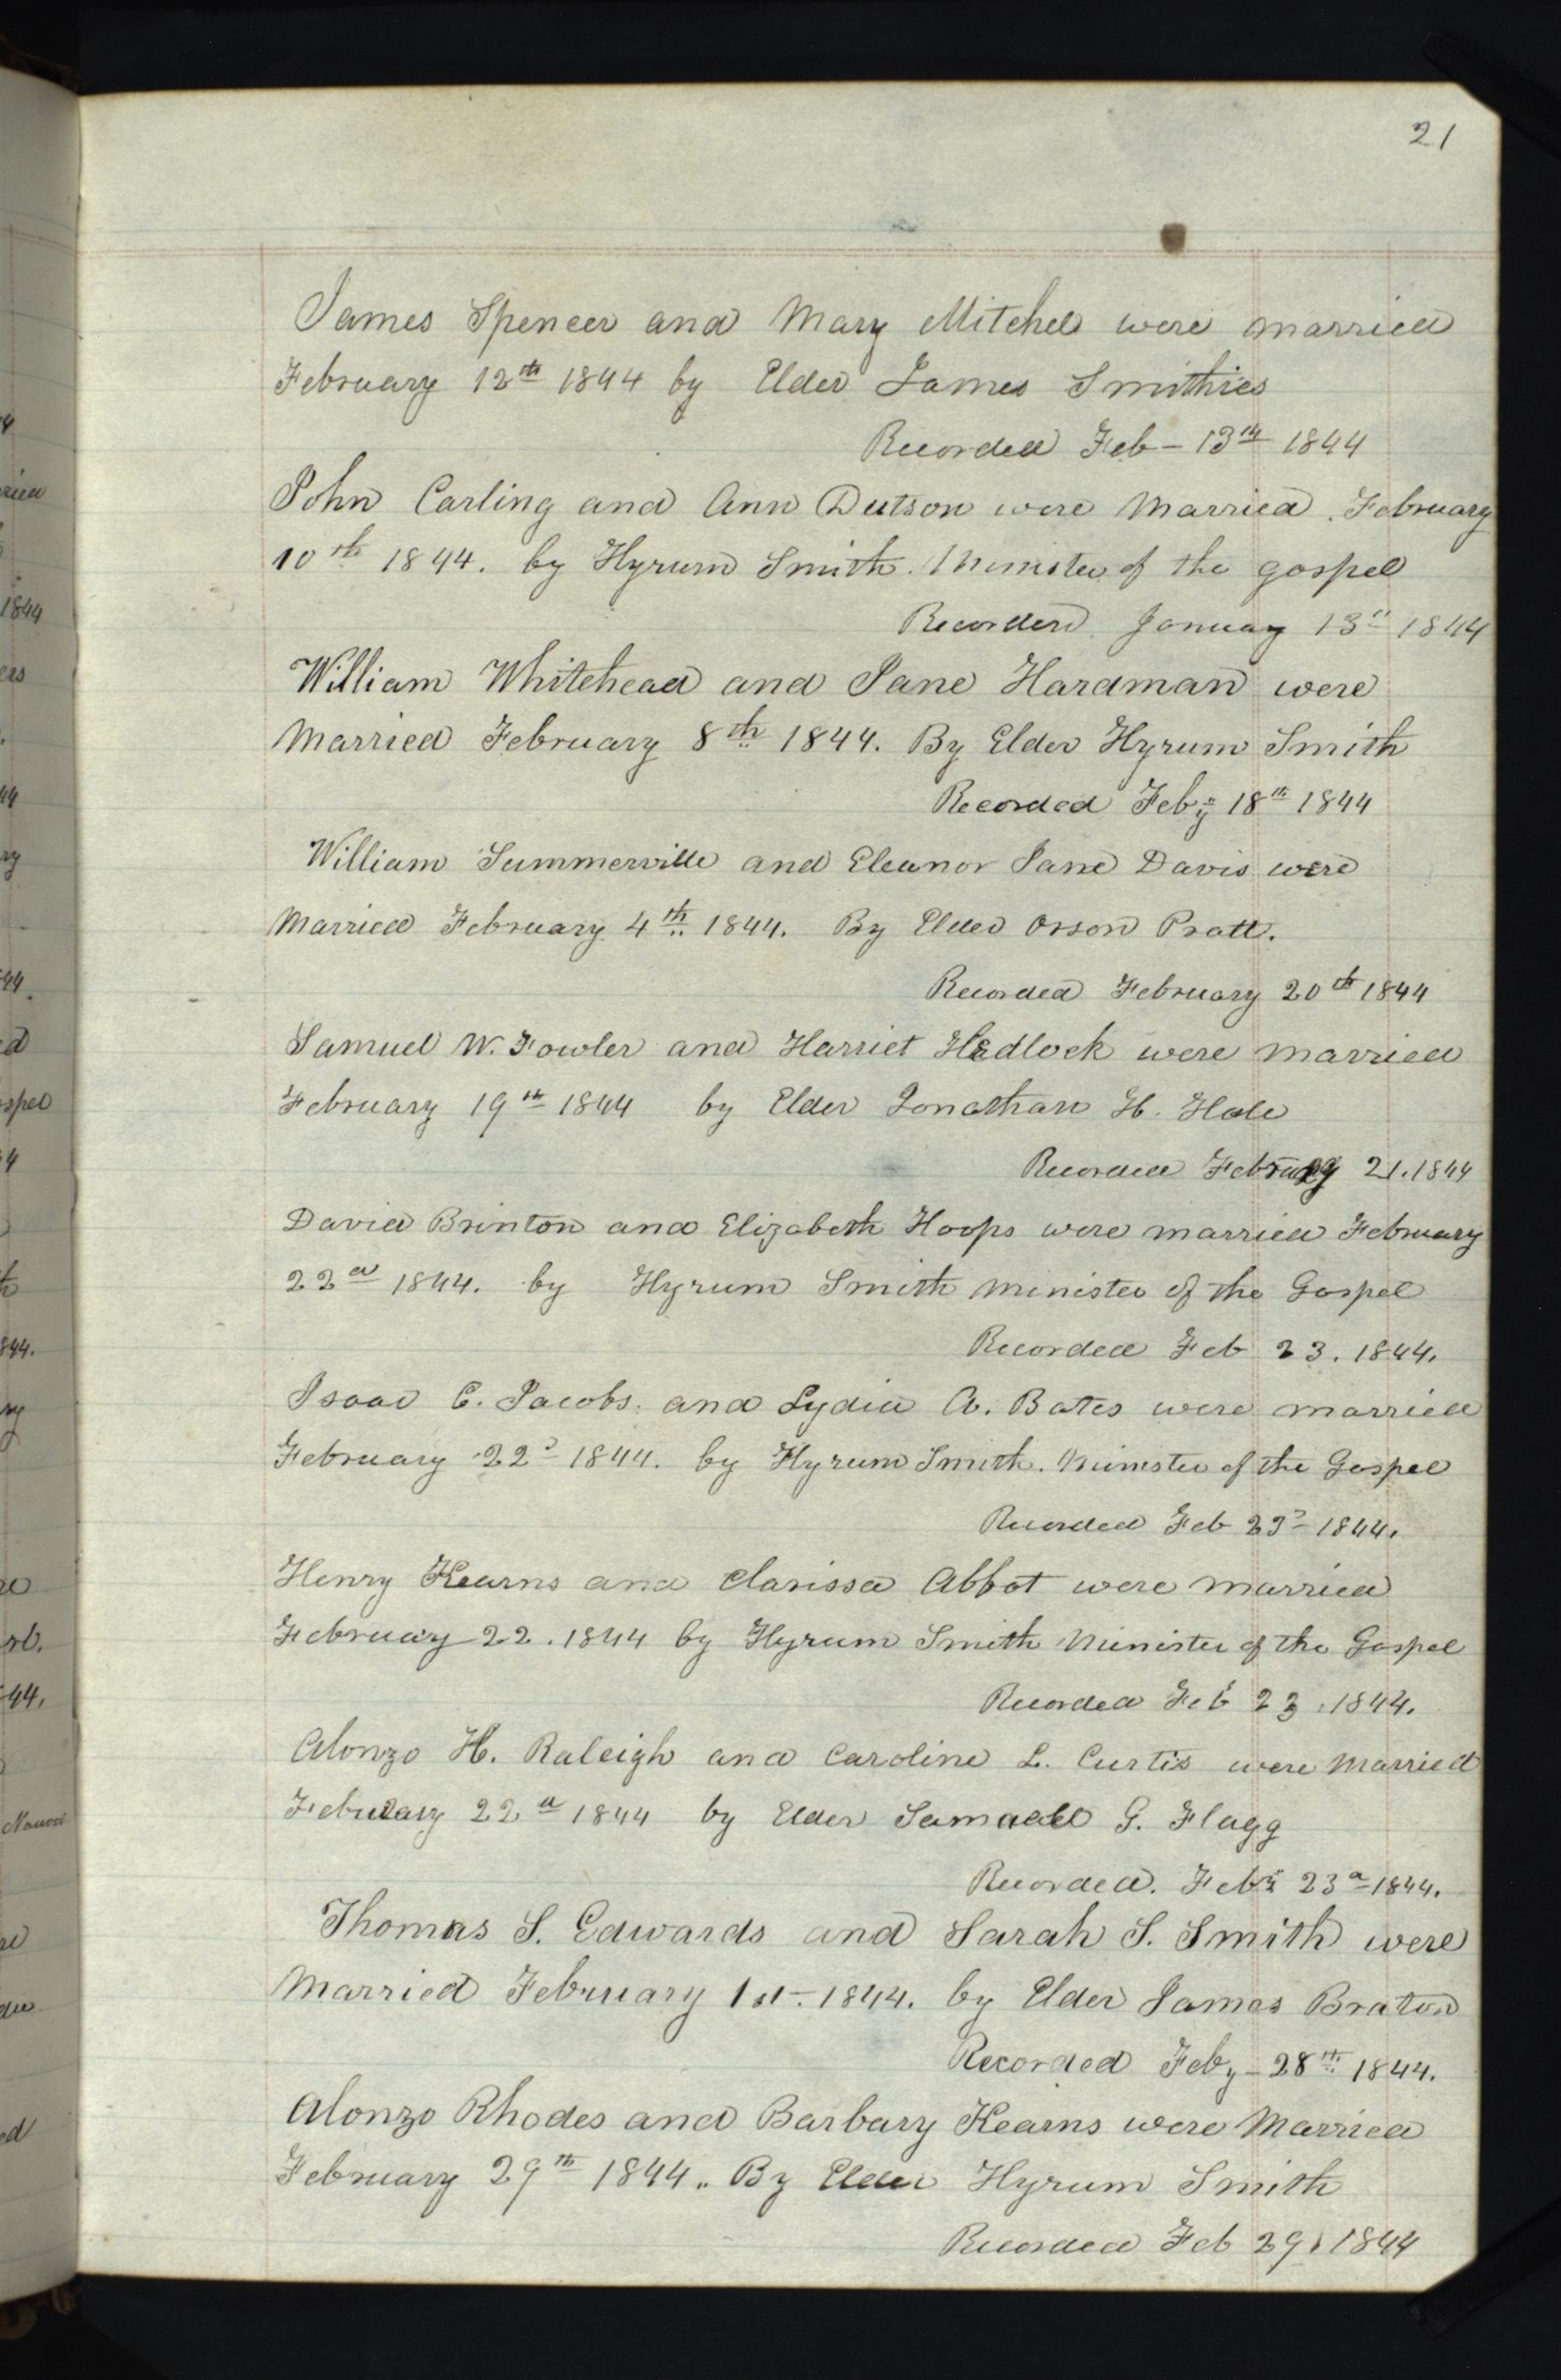 21
James Spencer and Mary Mitchel were married
February 12th 1844 by Elder James Smithies
Recorded Feb – 13th 1844
John Carling and Ann Dutson were Married. February
10th 1844. by Hyrum Smith. Minister of the gospel
Recorded. January 13th 1844
William Whitehead and Jane Hardman were
Married February 8th 1844. By Elder Hyrum Smith
Recorded Feby 18th 1844
William Summerville and Eleanor Jane Davis were
Married February 4th 1844. By Elder Orson Pratt.
Recorded February 20th 1844
Samuel W. Fowler and Harriet Hadlock were married
February 19th 1844 by Elder Jonathan H. Hale
Recorded February 21. 1844
David Brinton and Elizabeth Hoops were married February
22d 1844. by Hyrum Smith minister of the Gospel
Recorded Feb 23. 1844.
Isaac C. Jacobs. and Lydia A. Bates were married
February 22d 1844. by Hyrum Smith. Minister of the Gospel
Recorded Feb 23d 1844.
Henry Kearns and Clarissa Abbot were married
February 22. 1844 by Hyrum Smith Minister of the Gospel
Recorded Feb 23. 1844.
Alonzo H. Raleigh and Caroline L. Curtis were Married
February 22d 1844 by Elder G. Flagg
Recorded. Feby 23d 1844.
Thomas S. Edwards and Sarah S. Smith were
Married February 1st. 1844. by Elder James Braton
Recorded Feby – 28th 1844.
Alonzo Rhodes and Barbary Kearns were Married
February 29th 1844. By Elder Hyrum Smith
Recorded Feb 29. 1844